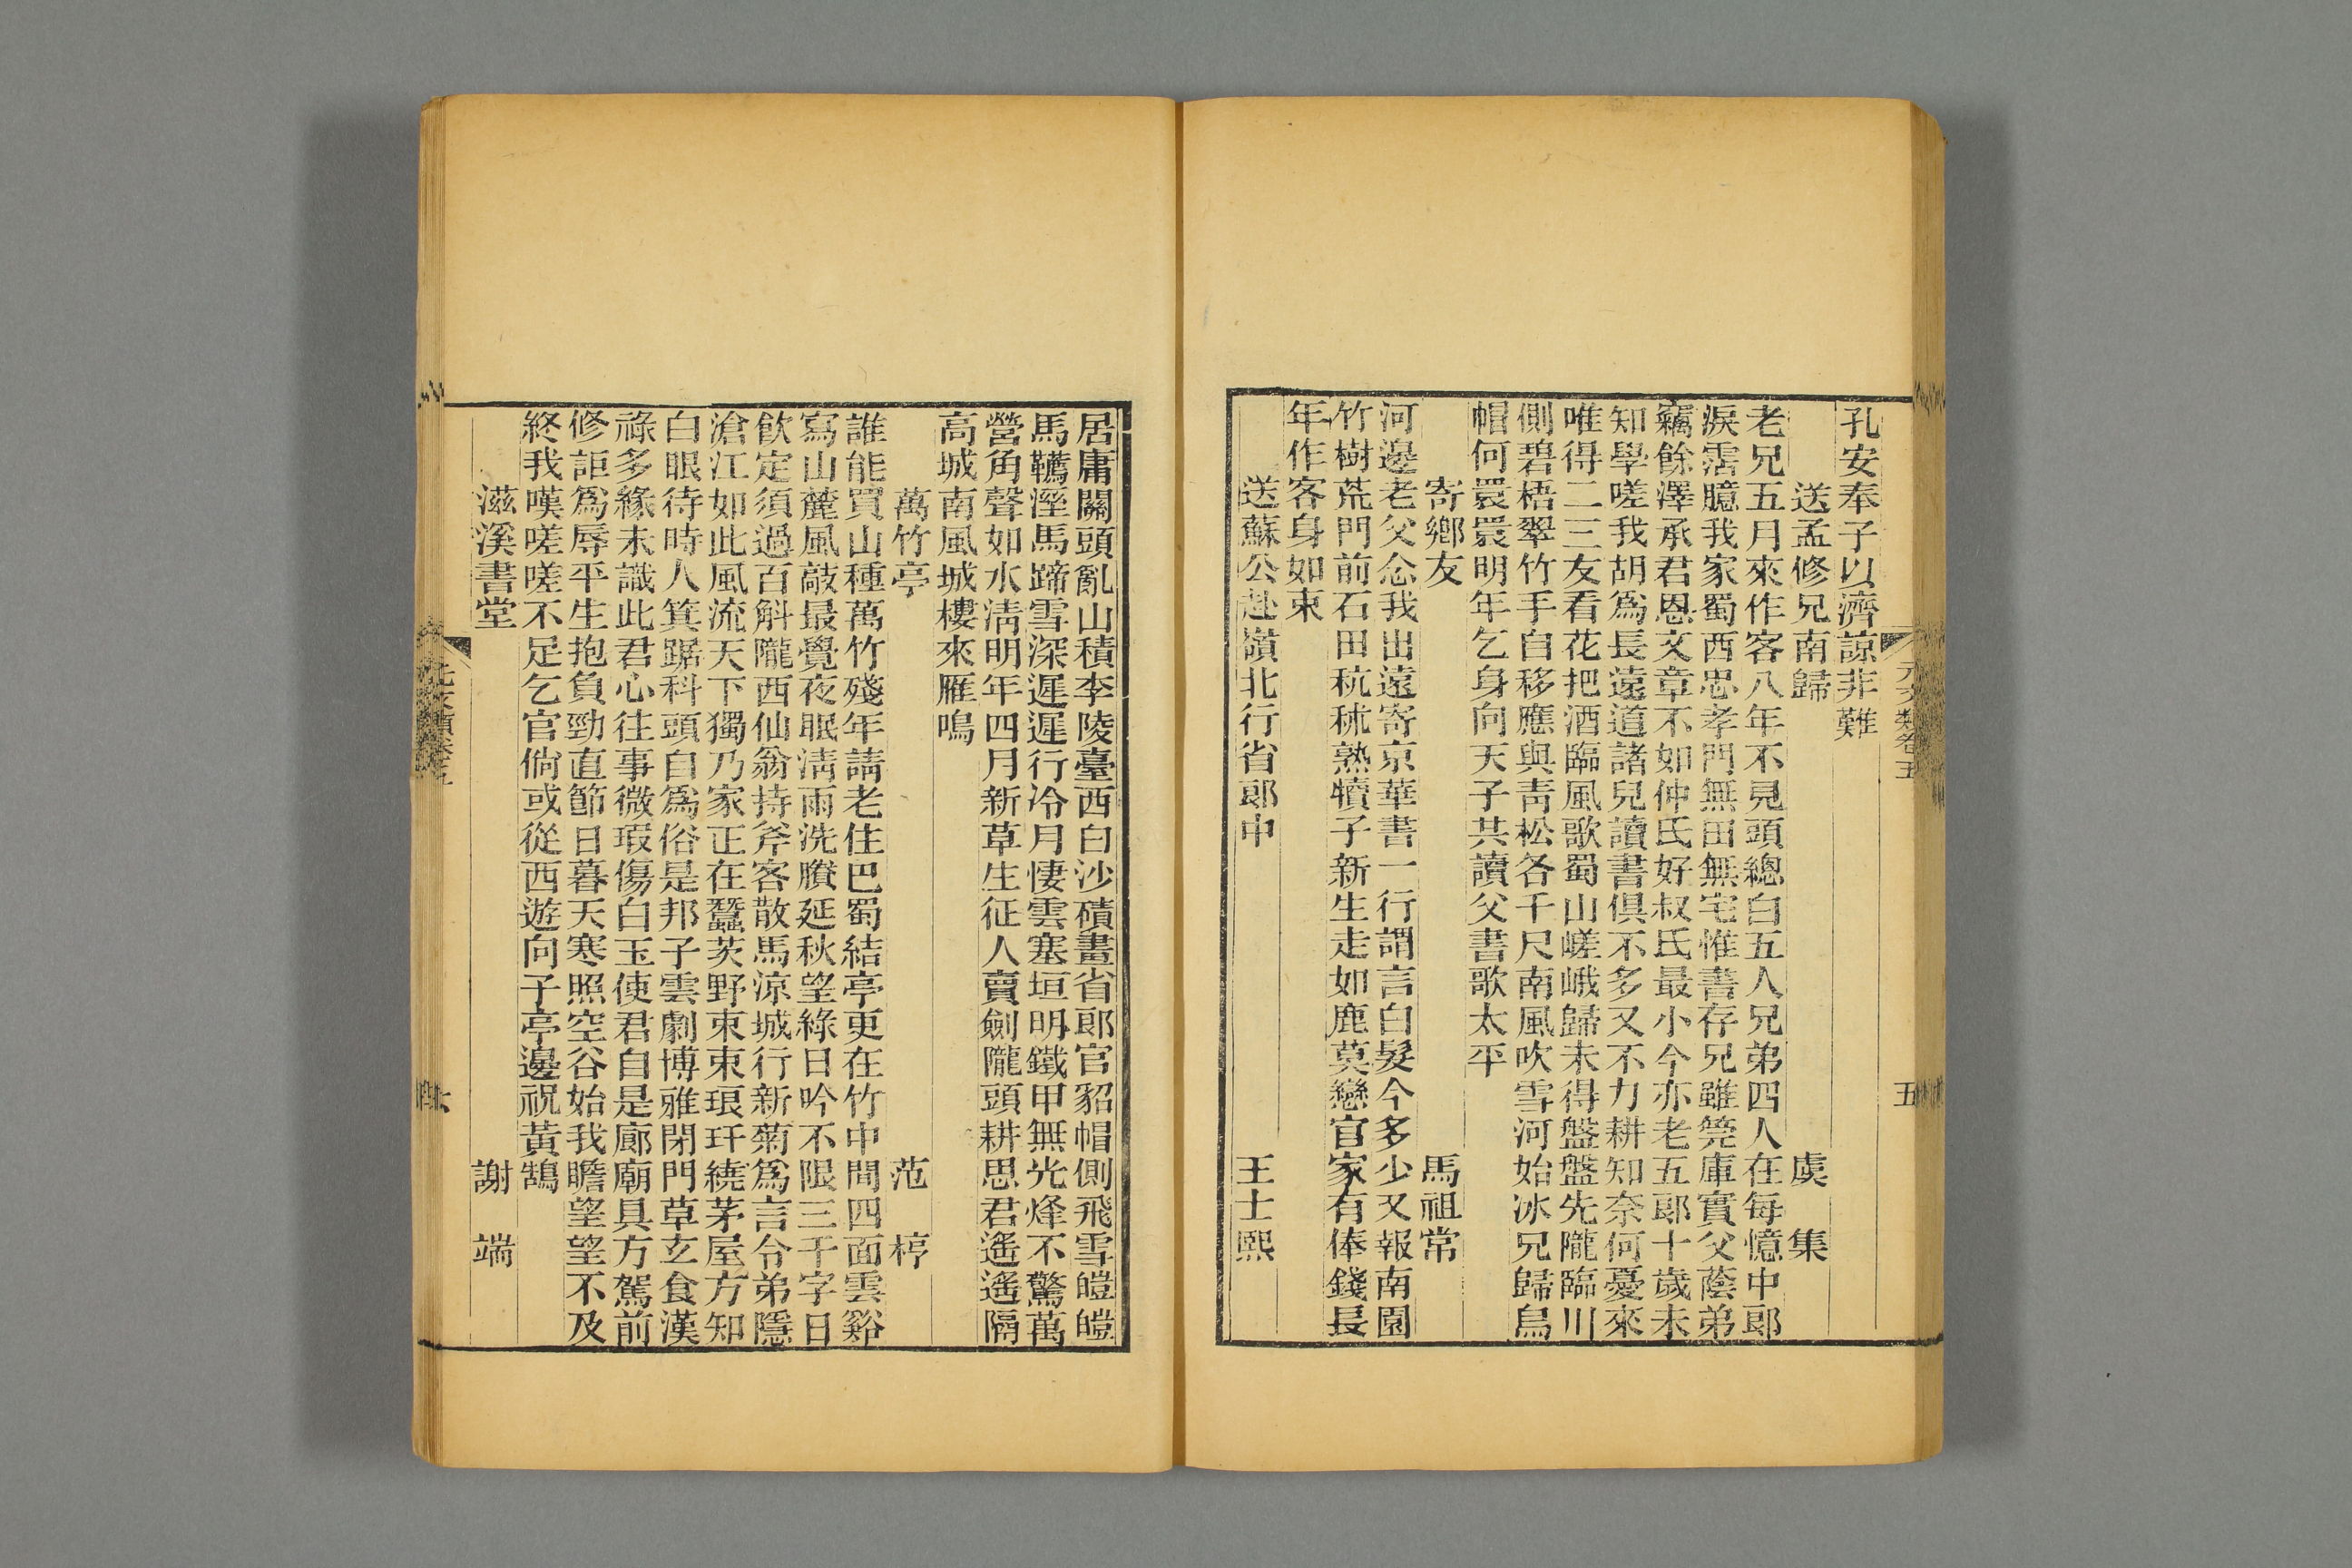 元文類卷五
五
孔安奉子以濟諒非難
送孟修兄南歸 虞集
老兄五月來作客八年不見頭總白五人兄弟四人在每憶中郎
淚霑臆我家蜀西忠孝門無田無宅惟書存兄雖筦庫實父蔭弟
竊餘澤承君恩文章不如仲氏好叔氏最小今亦老五郎十歲未
知學嗟我胡爲長遠道諸兒讀書俱不多又不力耕知奈何憂來
唯得二三友看花把酒臨風歌蜀山嵯峨歸未得盤盤先隴臨川
側碧梧翠竹手自移應與靑松各千尺南風吹雪河始冰兄歸烏
帽何睘睘明年乞身向天子共讀父書歌太平
寄鄉友 馬祖常
河邊老父念我出遠寄京華書一行謂言白髮今多少又報南園
竹樹荒門前石田秔秫熟犢子新生走如鹿莫戀官家有俸錢長
年作客身如束
送蘇公赴嶺北行省郎中 王士熙
居庸關頭亂山積李陵臺西白沙磧畫省郎官貂帽側飛雪皚皚
馬韉溼馬蹄雪深遲遲行冷月悽雲塞垣明鐵甲無光烽不驚萬
營角聲如水淸明年四月新草生征人賣劍隴頭耕思君遙遙隔
高城南風城樓來雁鳴
萬竹亭 范梈
誰能買山種萬竹殘年請老住巴蜀結亭更在竹中間四面雲谿
寫山麓風敲最覺夜眠淸雨洗賸延秋望綠日吟不限三千字日
飮定須過百斛隴西仙翁持斧客散馬涼城行新菊爲言令弟隱
滄江如此風流天下獨乃家正在蠶茨野束束東琅玕繞茅屋方知
白眼待時人箕踞科頭自爲俗是邦子雲劇博雅閉門草玄食漢
祿多緣未識此君心往事微瑕傷白玉使君自是廊廟具方駕前
修詎爲辱平生抱負勁直節日暮天寒照空谷始我瞻望望不及
終我嘆嗟嗟不足乞官倘或從西遊向子亭邊祝黃鵠
滋溪書堂 謝端